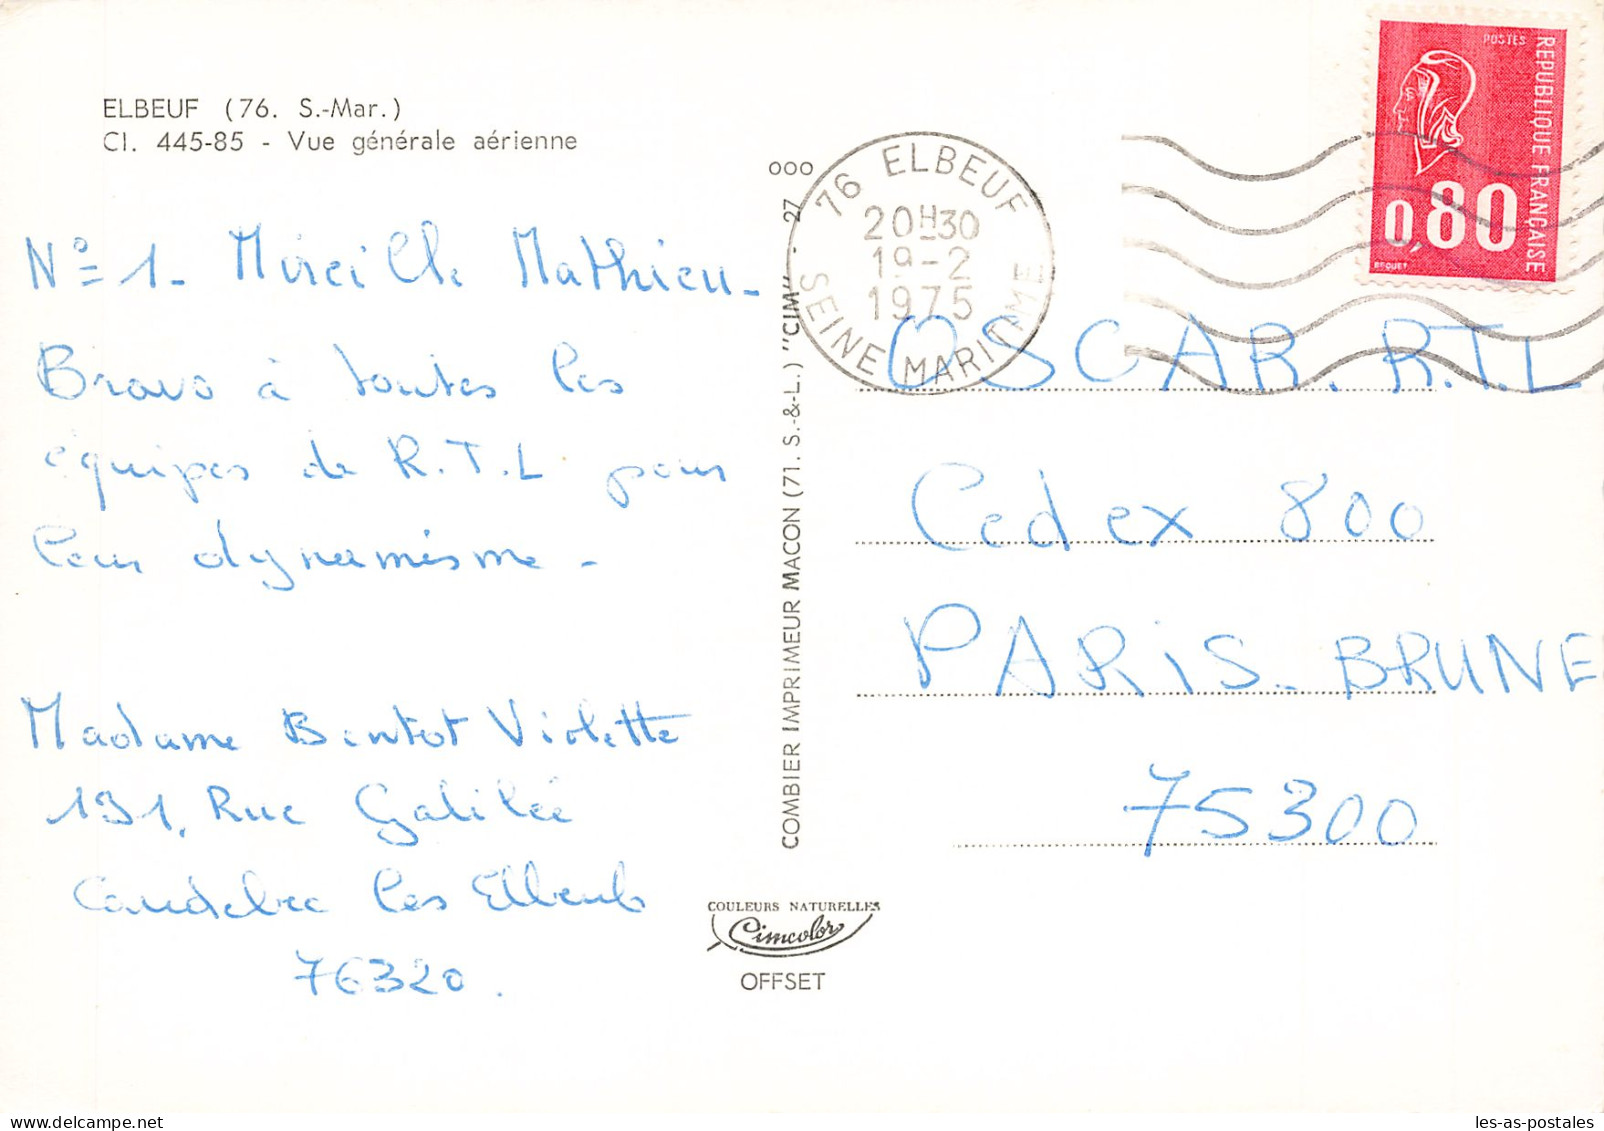 ELBEUF (76. S.-Mar.)
Cl. 445-85 - Vue générale aérienne
N° 1 - Mireille Mathieu -
Bravo à toutes les
équipes de R.T.L pour
leur dynamisme -
Madame Bentot Violette
191, Rue Galilée
Caudebec les Elbeufs
76320.
COULEURS NATURELLES
Cimcolor
OFFSET
COMBIER IMPRIMEUR MACON (71. S.-&-L.) "CIM" - 27
000
76 ELBEUF
20H30
19-2
1975
SEINE MARITIME
POSTES
REPUBLIQUE FRANÇAISE
0,80
BEQUET
OSCAR. R.T.L
Cedex 800
PARIS-BRUNE
75300
les-as-postales